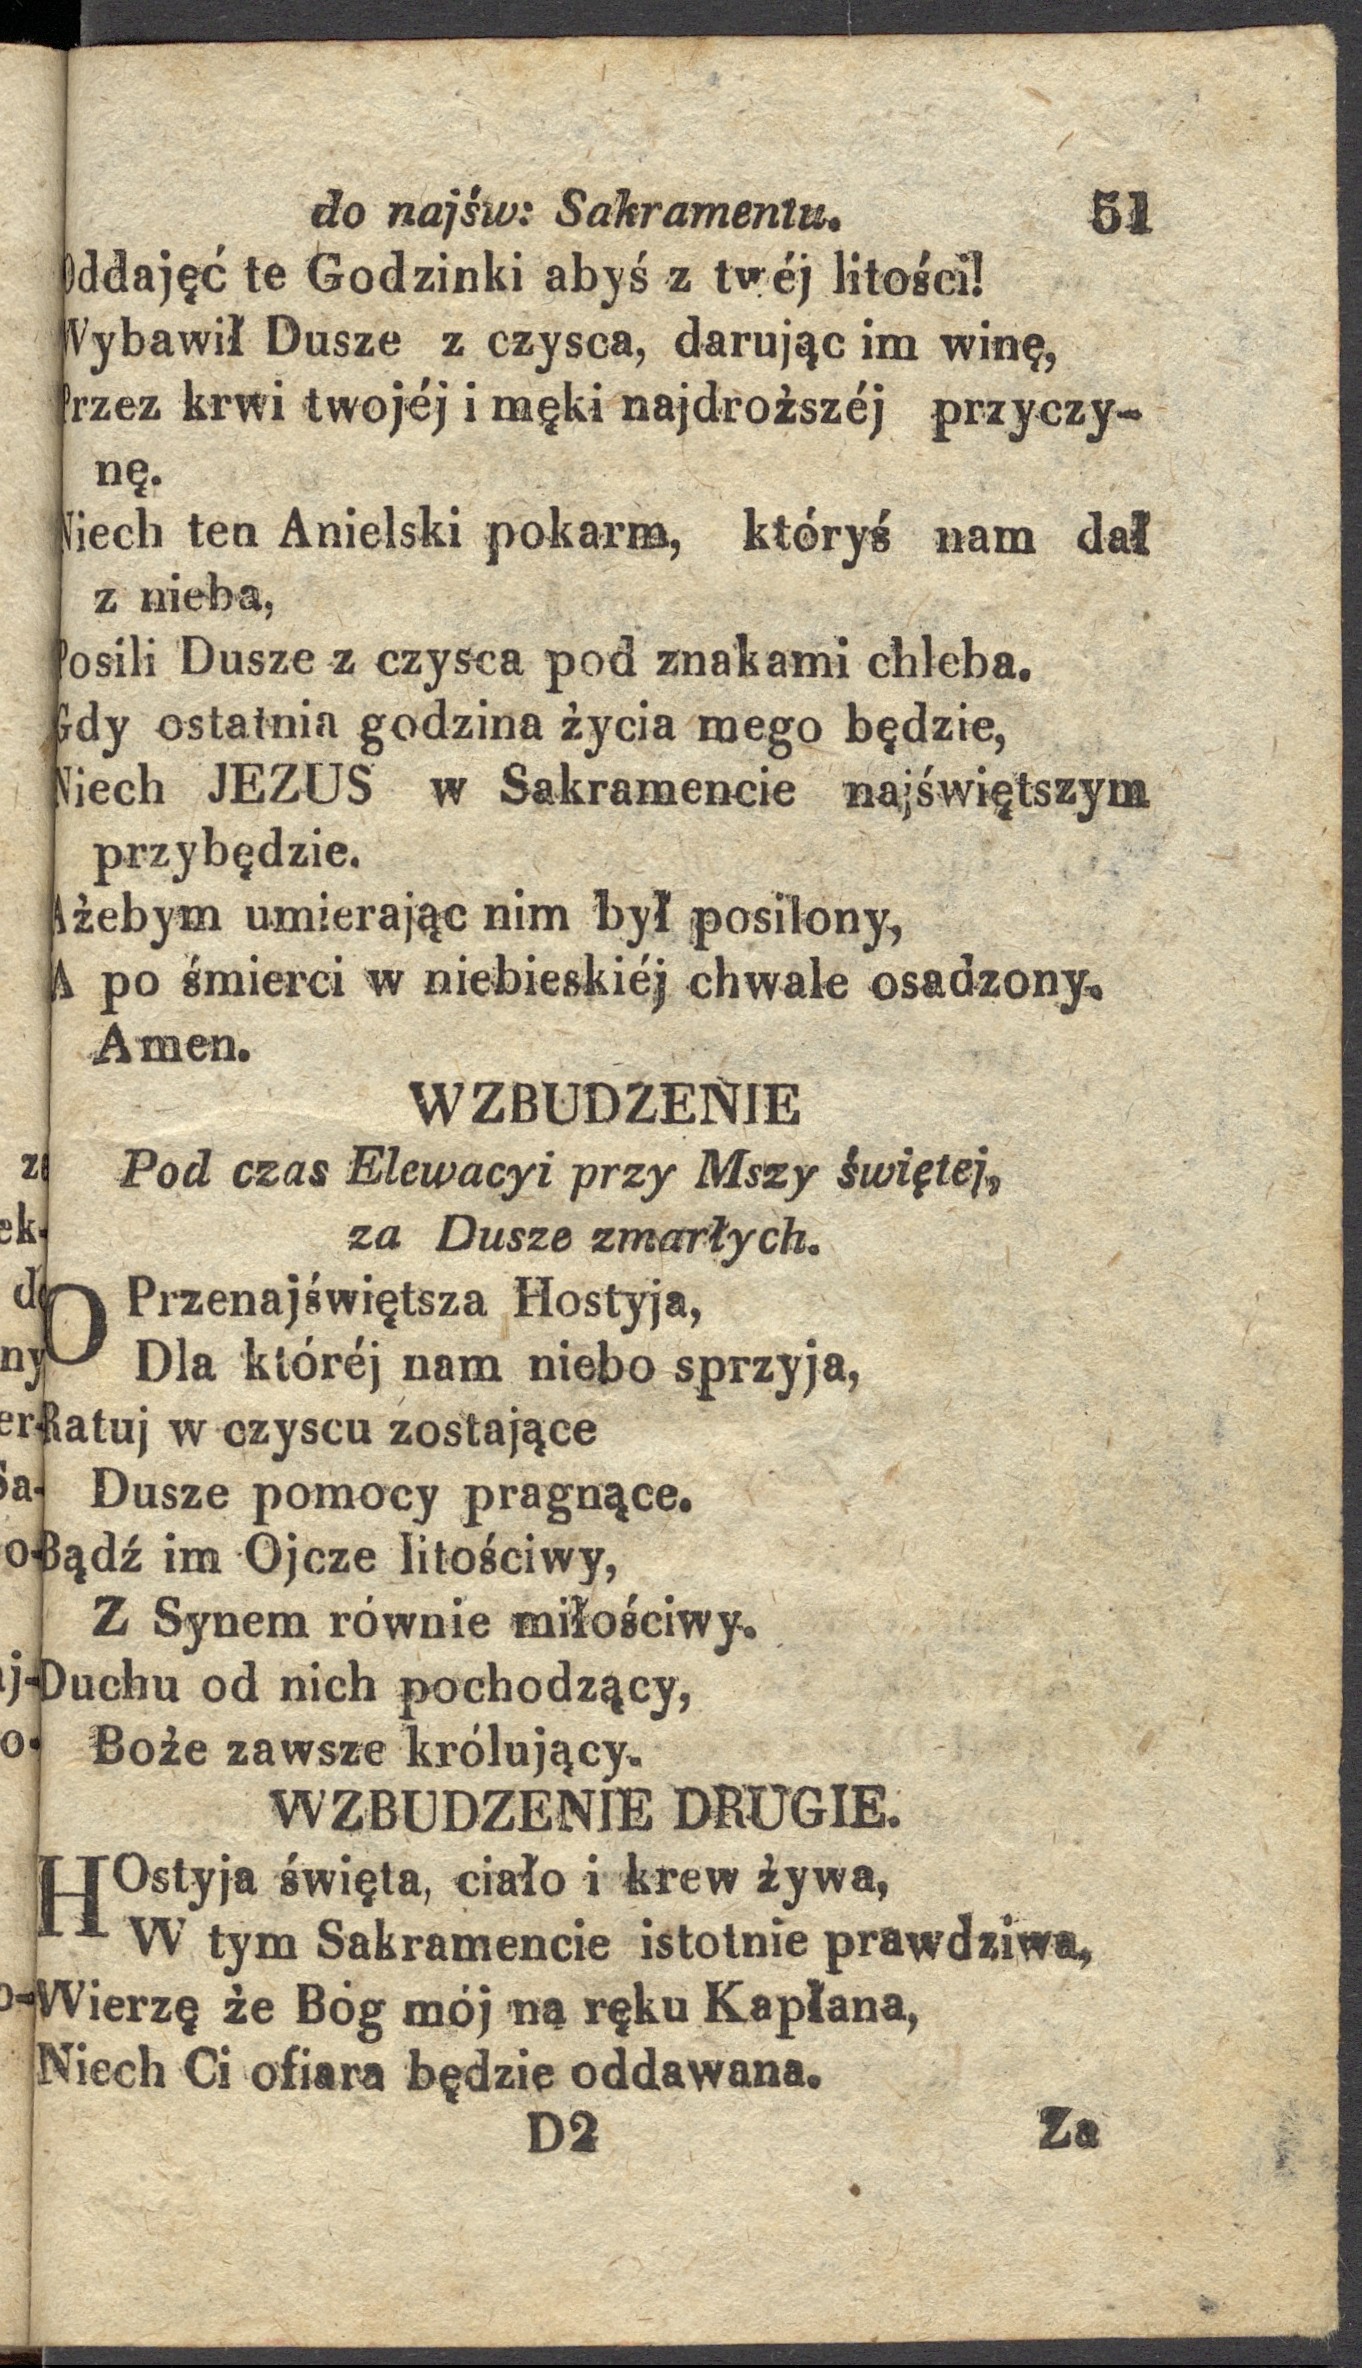 do najśw: Sakramentu. 51
Oddajęć te Godzinki abyś z twéj litości!
Wybawił Dusze z czysca, darując im winę,
Przez krwi twojéj i męki najdroższéj przyczy-
nę.
Niech ten Anielski pokarm, któryś nam dał
z nieba,
Posili Dusze z czysca pod znakami chleba.
Gdy ostatnia godzina życia mego będzie,
Niech JEZUS w Sakramencie najświętszym
przybędzie.
Ażebym umierając nim był posilony,
A po śmierci w niebieskiéj chwale osadzony.
Amen.
WZBUDZENIE
Pod czas Elewacyi przy Mszy świętej,
za Dusze zmarłych.
O Przenajświętsza Hostyja,
Dla któréj nam niebo sprzyja,
Ratuj w czyscu zostające
Dusze pomocy pragnące.
Bądź im Ojcze litościwy,
Z Synem równie miłościwy.
Duchu od nich pochodzący,
Boże zawsze królujący.
WZBUDZENIE DRUGIE.
HOstyja święta, ciało i krew żywa,
W tym Sakramencie istotnie prawdziwa,
Wierzę że Bóg mój na ręku Kapłana,
Niech Ci ofiara będzie oddawana.
D2 Za